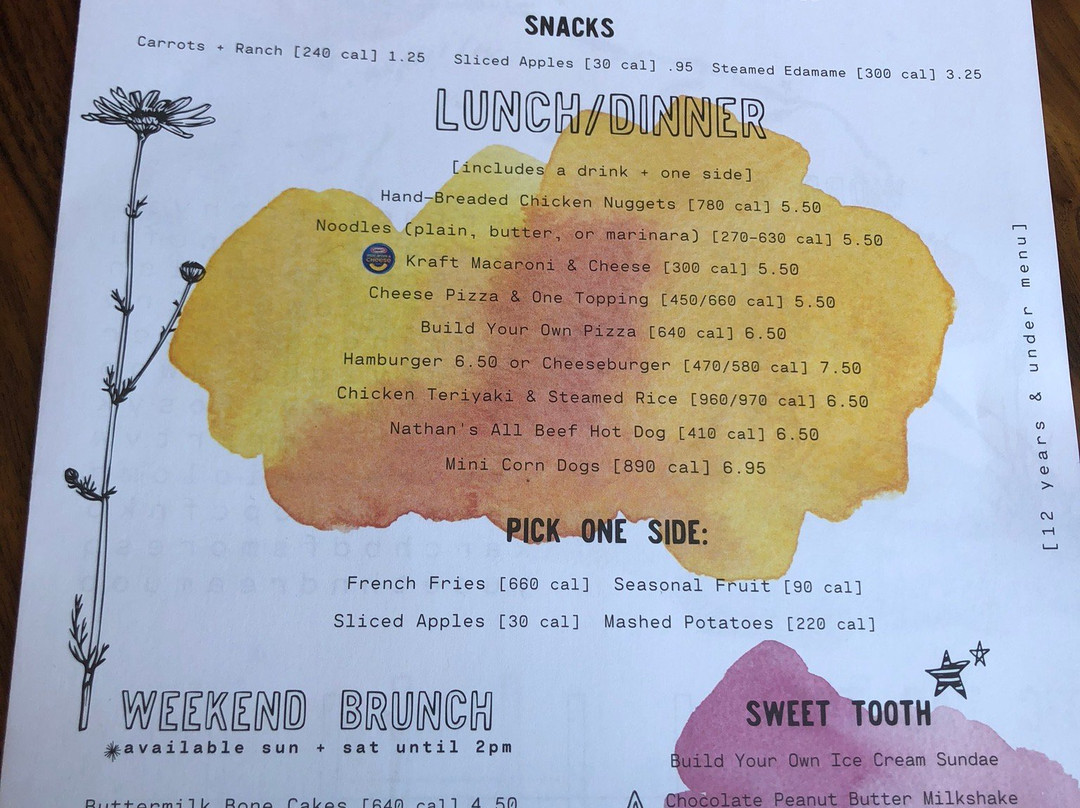 SNACKS
Carrots + Ranch [240 cal] 1.25 Sliced Apples [30 cal] .95 Steamed Edamame [300 cal] 3.25
LUNCH/DINNER
[includes a drink + one side]
Hand-Breaded Chicken Nuggets [780 cal] 5.50
Noodles (plain, butter, or marinara) [270-630 cal] 5.50
Kraft Macaroni & Cheese [300 cal] 5.50
Cheese Pizza & One Topping [450/660 cal] 5.50
Build Your Own Pizza [640 cal] 6.50
Hamburger 6.50 or Cheeseburger [470/580 cal] 7.50
Chicken Teriyaki & Steamed Rice [960/970 cal] 6.50
Nathan's All Beef Hot Dog [410 cal] 6.50
Mini Corn Dogs [890 cal] 6.95
[12 years & under menu]
PICK ONE SIDE:
French Fries [660 cal] Seasonal Fruit [90 cal]
Sliced Apples [30 cal] Mashed Potatoes [220 cal]
WEEKEND BRUNCH
*available sun + sat until 2pm
Buttermilk Bone Cakes [640 cal] 4.50
SWEET TOOTH
Build Your Own Ice Cream Sundae
Chocolate Peanut Butter Milkshake